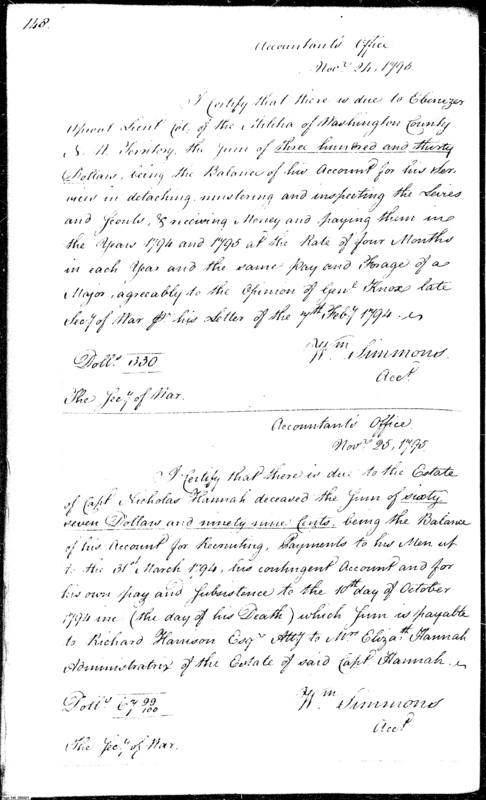 148.
Accountant's Office
Nov.r 24, 1795
I Certify that there is due to Ebenezer
Sproat Lieut Col. of the Militia of Washington County
N. W. Territory, the Sum of three hundred and thirty
Dollars, being the Balance of his Account for his Ser-
vices in detaching, mustering and inspecting the Levies
and Scouts, & receiving Money and paying them in
the Years 1794 and 1795 at the Rate of four Months
in each Year and the same Pay and Forage of a
Major, agreeably to the Opinion of Genl. Knox late
Secy of War pr. his Letter of the 7th Feby 1794.
Dolls. 330
Wm Simmons.
Acct.
The Secy of War.
Accountant's Office
Novr. 25, 1795
I Certify that there is due to the Estate
of Capt Nicholas Hannah deceased the Sum of sixty
seven Dollars and ninety nine Cents, being the Balance
of his Account for Recruiting, Payments to his Men up
to the 31st March 1794, his contingent Account and for
his own pay and Subsistence to the 10th day of October
1794 inc (the day of his Death) which Sum is payable
to Richard Harrison Esqr Atty to Mrs Elizath Hannah
Administratrix of the Estate of said Capt Hannah.
Dolls 67 99/100
Wm Simmons
Acct
The Secy of War.